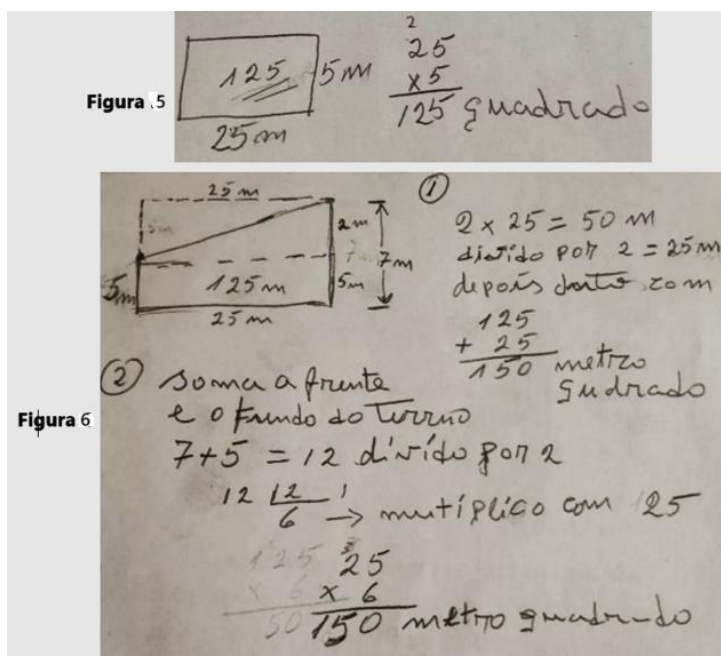 Figura 5
125
5m
25m
2
25
x5
125 quadrado
Figura 6
25 m
5m
2m
7m
5m
125m
5m
25 m
①
2 x 25 = 50 m
divido por 2 = 25m
depois com
125
+ 25
150 metro
qudrado
② soma a frente
e o fundo do terreno
7+5 = 12 divído por 2
12 2
6 → mutíplico com 25
125
x 6
50
25
x 6
150 metro quadrado